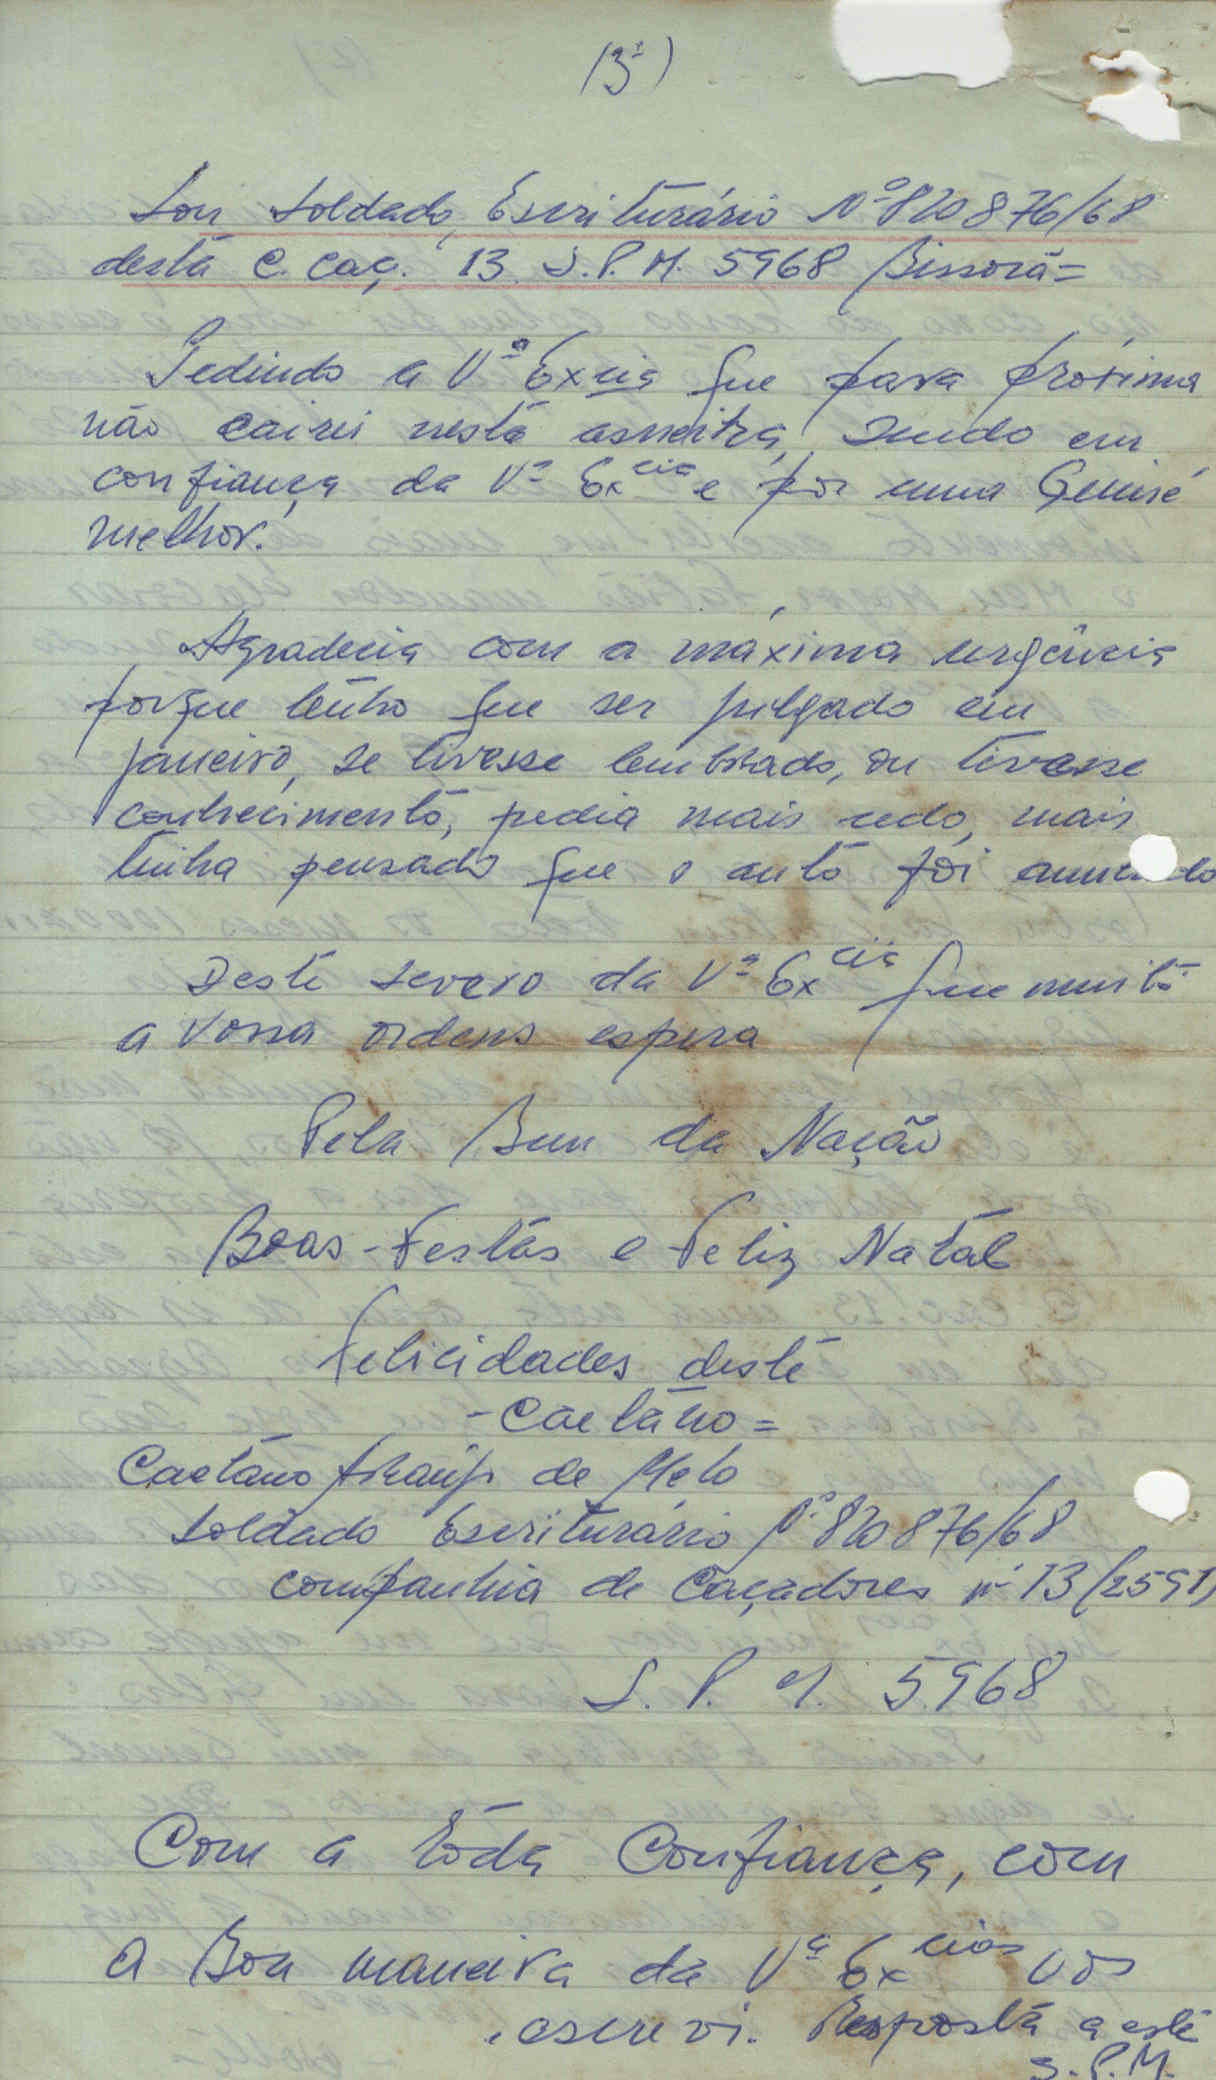 (3ª)
Sou Soldado, Escriturário Nº 820876/68
destá C. Caç. 13 S.P.M. 5968 Bissorã=
Pedindo a Vª Excia que para próxima
não cairei nestá asneitra, Sendo em
confiança da Vª Excia e por uma Guiné
melhor.
Agradecia com a máxima urgência
porque tenho que ser julgado em
janeiro, se tivesse lembrado, ou tivesse
conhecimentó, pedia mais cedo, mais
tinha pensado que o autó foi
Desté servero da Vª Excia que muitó
a vossa ordens espera
Pela Bem da Nação
Boas-Festás e Feliz Natál
Felicidades desté
-Caetáno=
Caetáno Araújo de Melo
Soldado Escriturário Nº 820876/68
companhia de Caçadores nº 13/(2591)
S. P. M. 5968
Com a tóda Confiança, com
a Boa maneira da Vª Excias vos
escrevi. Respostá a esté
S.P.M.